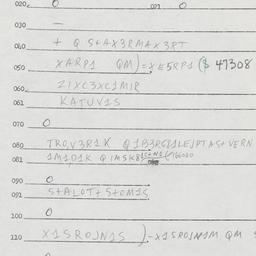 020. O 021 O
030 —
040 + Q S4AX3RMAX3RT
050 XARP1 QM)=XE5RP1 ($ 47308
060 Z1XC3XC1M1R
061 KATUV1S
070 O
080 TROV3R1X Q1B3RG1LEJPTAS+VERN
081 1M1O1K Q1MSK8
090 O
091 S+ALOT+S+OM1S
100 O
110 X1SROJN1S )-X1SROJN1M QM